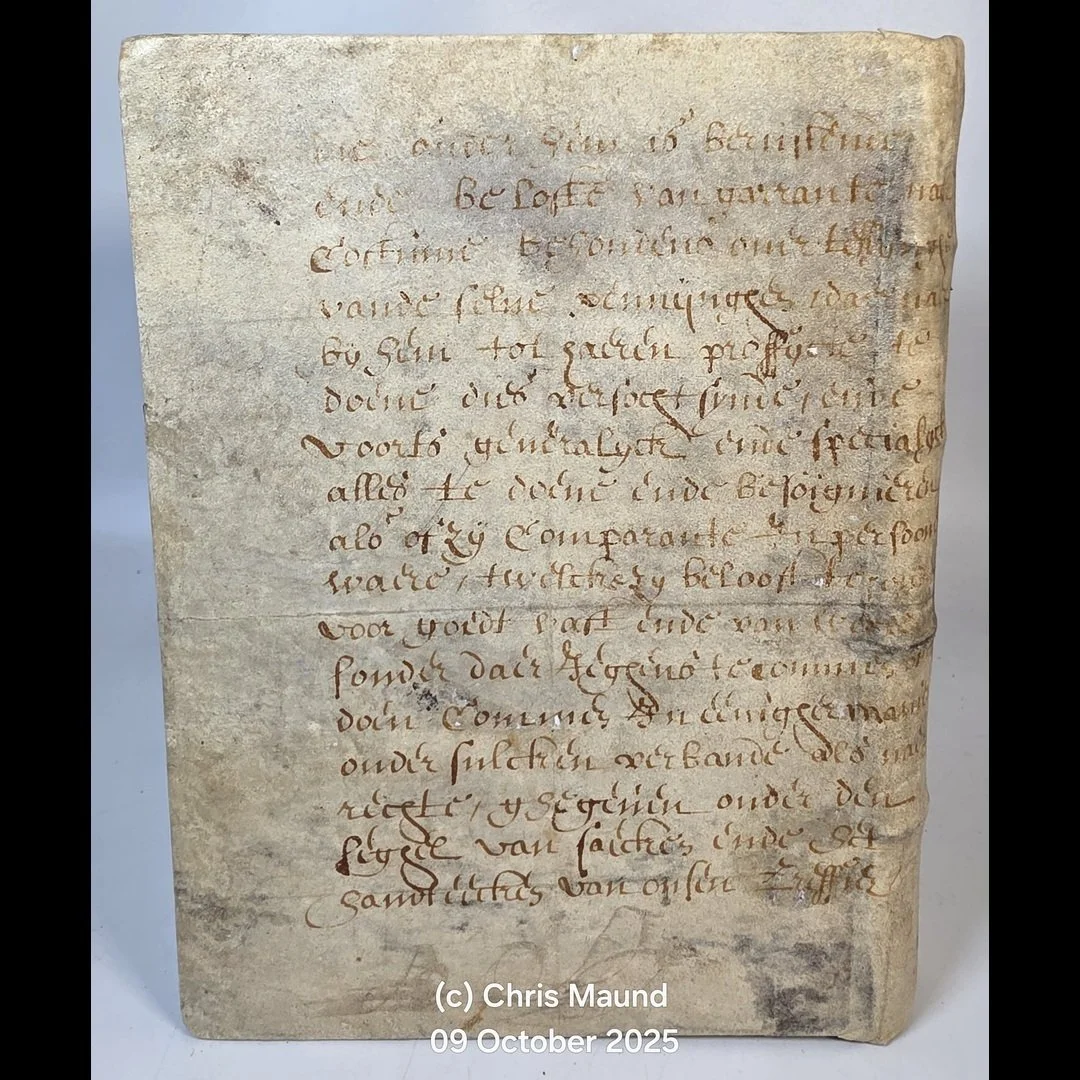 die onder hem is berustende
ende belofte van garrant
Costume behoudens
vande selve penningen
by hem tot haeren proffyte te
doene dies versocht synde, ende
voorts generalyck ende specialyck
alles te doene ende besoignieren
als oft zy Comparante In persoon
waere, twelck zy beloof
voor goedt vast ende van
sonder daer Jeghens te commen
doen Commen In eenigher
onder sulcken verbande als
rechte, ghegeven onder den
seghel van saecken ende het
handteecken van onsen Greffier
(c) Chris Maund
09 October 2025